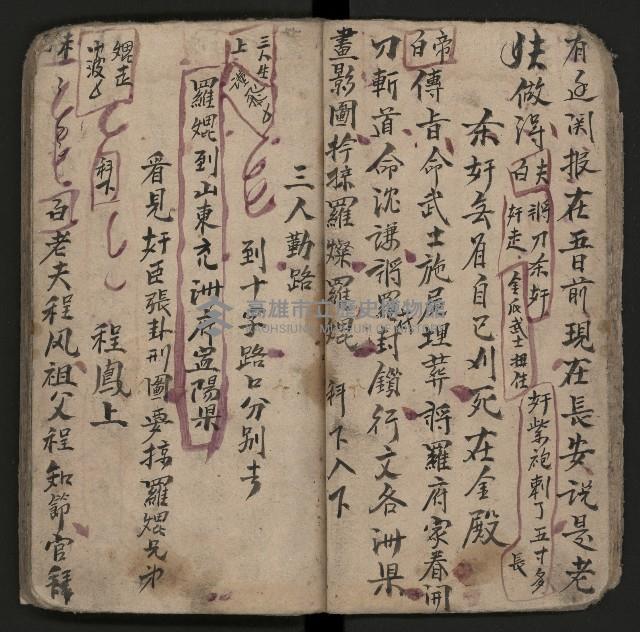 有廷関报在五日前現在長安说是老
妖做得
夫将刀杀奸
白 奸走 金瓜武士扭住
奸紫袍刺了五寸多長
杀奸无首自己刈死在金殿
帝白
傳旨命武士施尸理葬将羅府家眷開
刀斬道命沈謙将羅封鎖行文各洲県
畫影圖拎掠羅燦羅焜 科下入下
三人勤路
三人生
上
到十字路口分别去
羅焜到山東兖洲府 陽県
看見奸臣張卦刑圖要掠羅焜兄弟
焜走
科下
程鳳上
白老夫程风祖父程知節官拜
高雄市立歷史博物館
KAOHSIUNG MUSEUM OF HISTORY